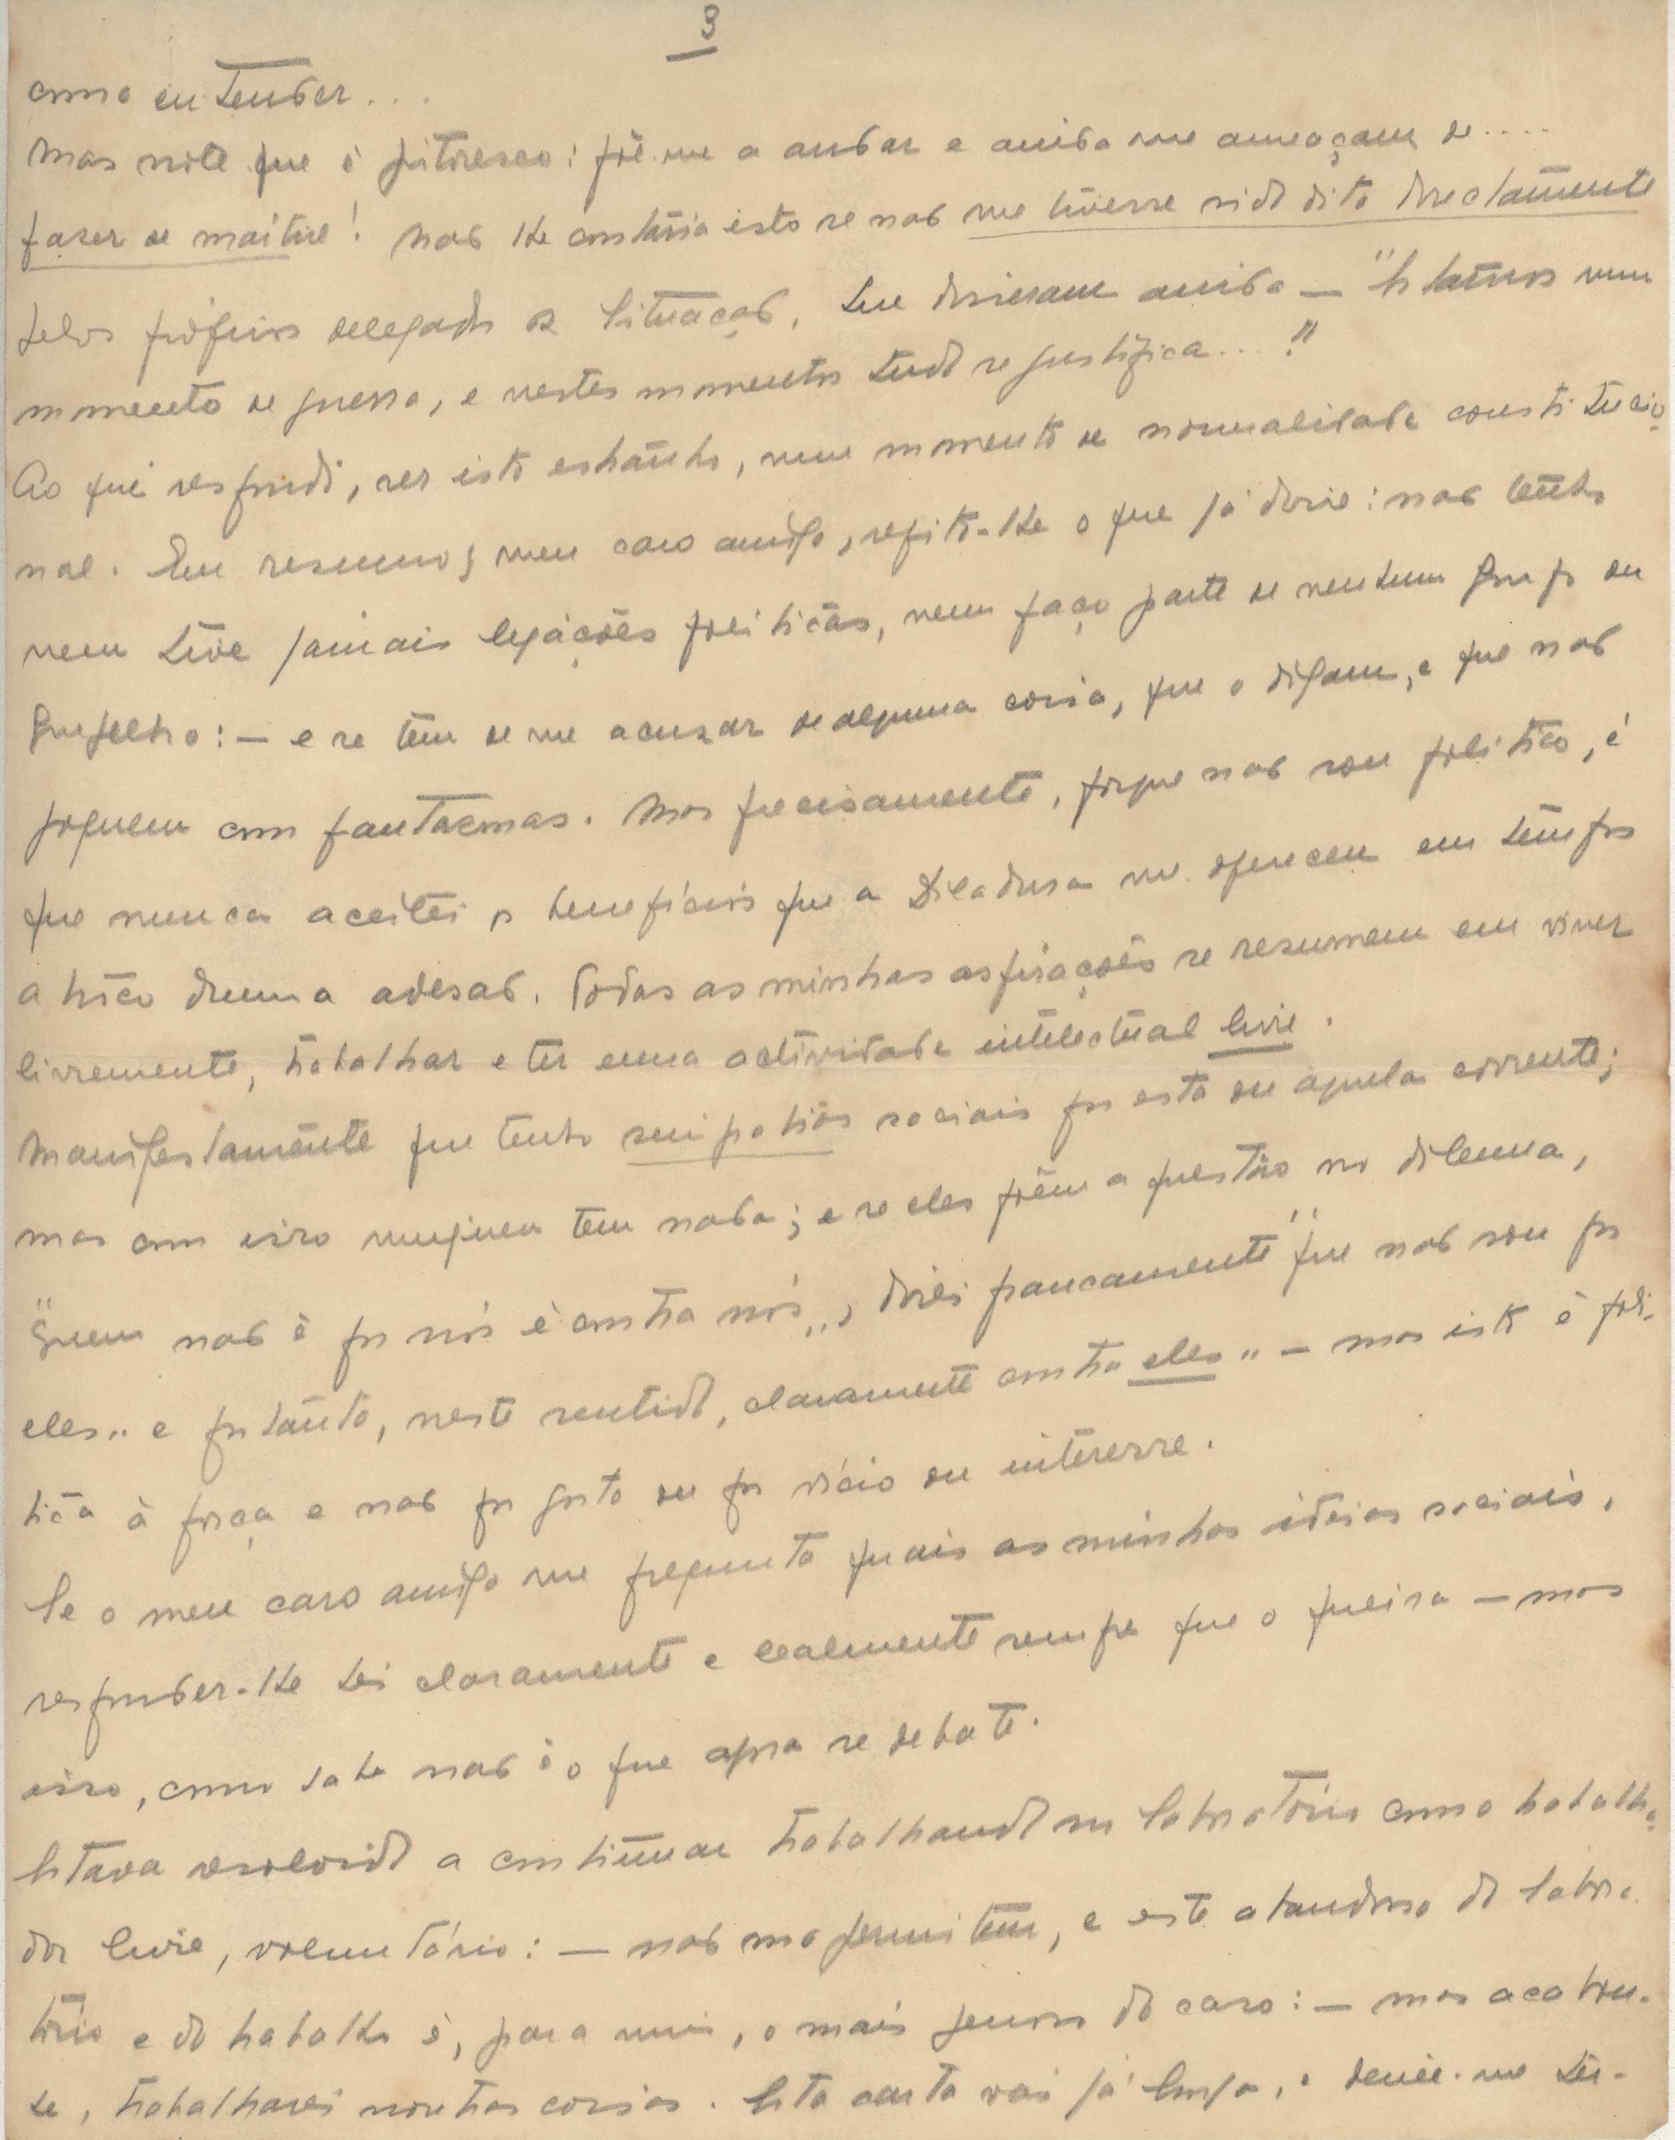 3
como entender...
Mas note que é pitoresco: põe-me a andar e ainda me ameaçam de....
fazer de maître! Não lhe contaria isto se não me tivesse sido dito directamente
pelos próprios delegados da Situação, que disseram ainda — "Estamos num
momento de guerra, e nestes momentos tudo se justifica...!"
Ao que respondi, ser isto estranho, num momento de normalidade constitucio-
nal. Em resumo, meu caro amigo, repito-lhe o que já disse: não tenho
nem tive jamais ligações políticas, nem faço parte de nenhum grupo ou
grupelho: — e se têm de me acusar de alguma coisa, que o digam, e que não
joguem com fantasmas. Mas precisamente, porque não sou político, é
que nunca aceitei os benefícios que a Ditadura me ofereceu em tempos
a trôco duma adesão. Todas as minhas aspirações se resumem em viver
livremente, trabalhar e ter uma actividade intelectual livre.
Manifestamente que tenho simpatias sociais por esta ou aquela corrente;
mas com isso ninguem tem nada; e se eles põem a questão no dilema,
"Quem não é por nós é contra nós", direi francamente "que não sou por
eles" e portanto, neste sentido, claramente contra eles" — mas isto é polí-
tica à força e não por gosto ou por vício ou interesse.
Se o meu caro amigo me pregunta quais as minhas ideias sociais,
responder-lhe hei claramente e lealmente sempre que o queira — mas
isso, como sabe não é o que agora se debate.
Estava resolvido a continuar trabalhando no Laboratório como trabalha-
dor livre, voluntário: — não mo permitem, e este abandono do labora-
tório e do trabalho é, para mim, o mais penoso do caso: — mas acabou-
se, trabalharei noutras coisas. Esta carta vai já longa, e deixe-me ter-